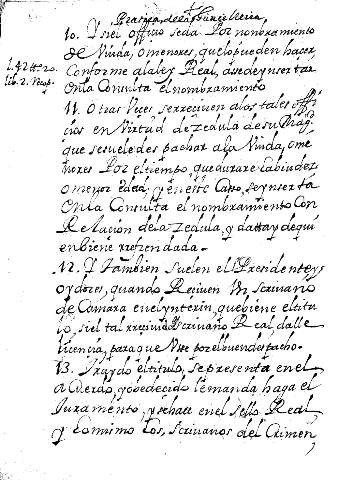 Practica de la Chancilleria
10. Y si el offiçio se da Por nombramiento
de Viuda, o menores, que lo pueden hacer,
Conforme a la ley Real, a se de ynsertar
en la Consulta el nombramiento
L. 42 tt. 20.
lib. 2. Recop.
11. Otras Veces se reciuen a los tales offi
cios en Virtud de Zedula de su Magd
que se suele despachar a la Viuda, o me
nores Por el tiempo, que durare la biudez
o menor edad, y en este Casso, se ynserta
en la Consulta el nombramiento Con
Relacion de la Zedula, y datta y de qui
en biene refrendada.
12. Y tambien suelen el Presidente, y
oydores, quando Reciuen Un scriuano
de Camara en el ynterin, que biene el titu
lo, si el tal es scriuano Real, dalle
licencia, para que Use por el buen despacho.
13. Traydo el titulo, se presenta en el
acuerdo, y obedecido le manda haga el
Juramento, y se hace en el sello Real,
y lo mismo los, scriuanos del Crimen,